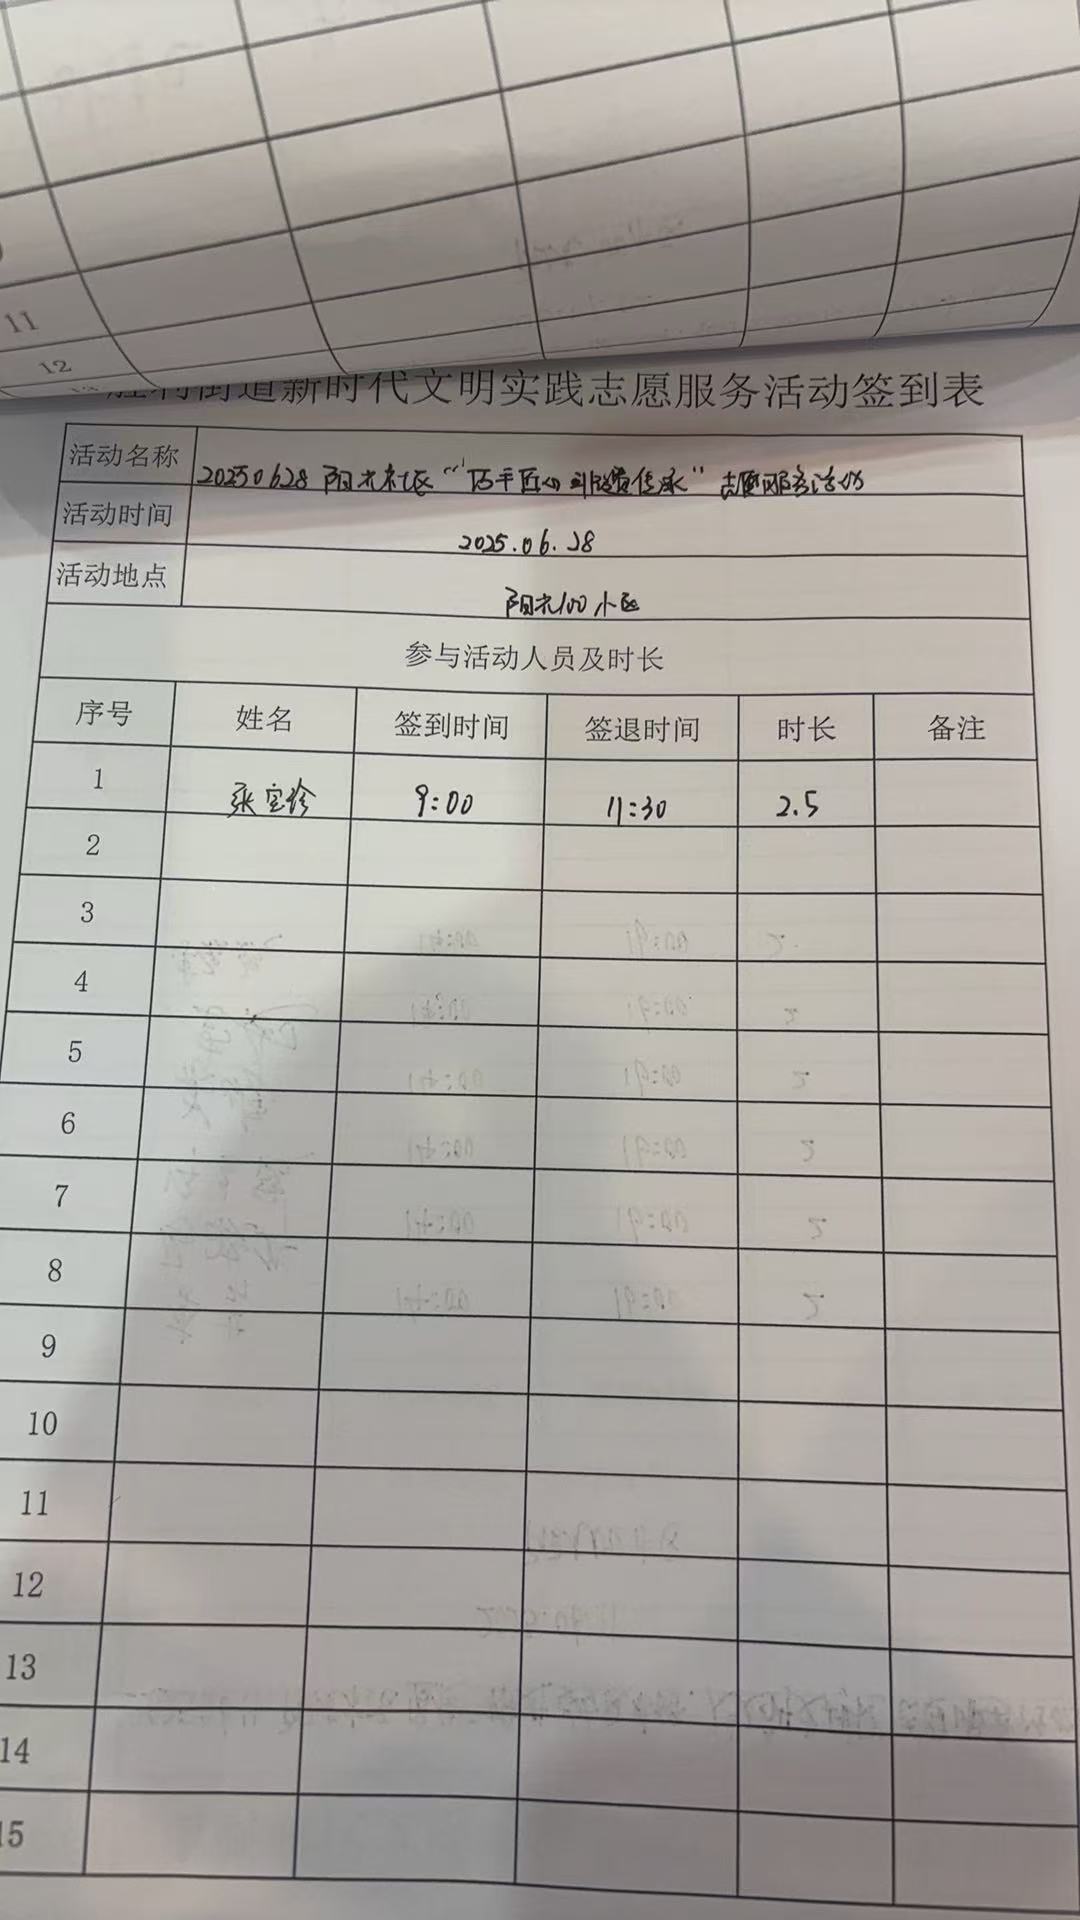 11
12
街道新时代文明实践志愿服务活动签到表
活动名称 20250628 阳光社区“巧手匠心 非遗传承”志愿服务活动
活动时间 2025.06.28
活动地点 阳光100小区
参与活动人员及时长
序号 姓名 签到时间 签退时间 时长 备注
1 张宝珍 9:00 11:30 2.5
2
3
4
5
6
7
8
9
10
11
12
13
14
15